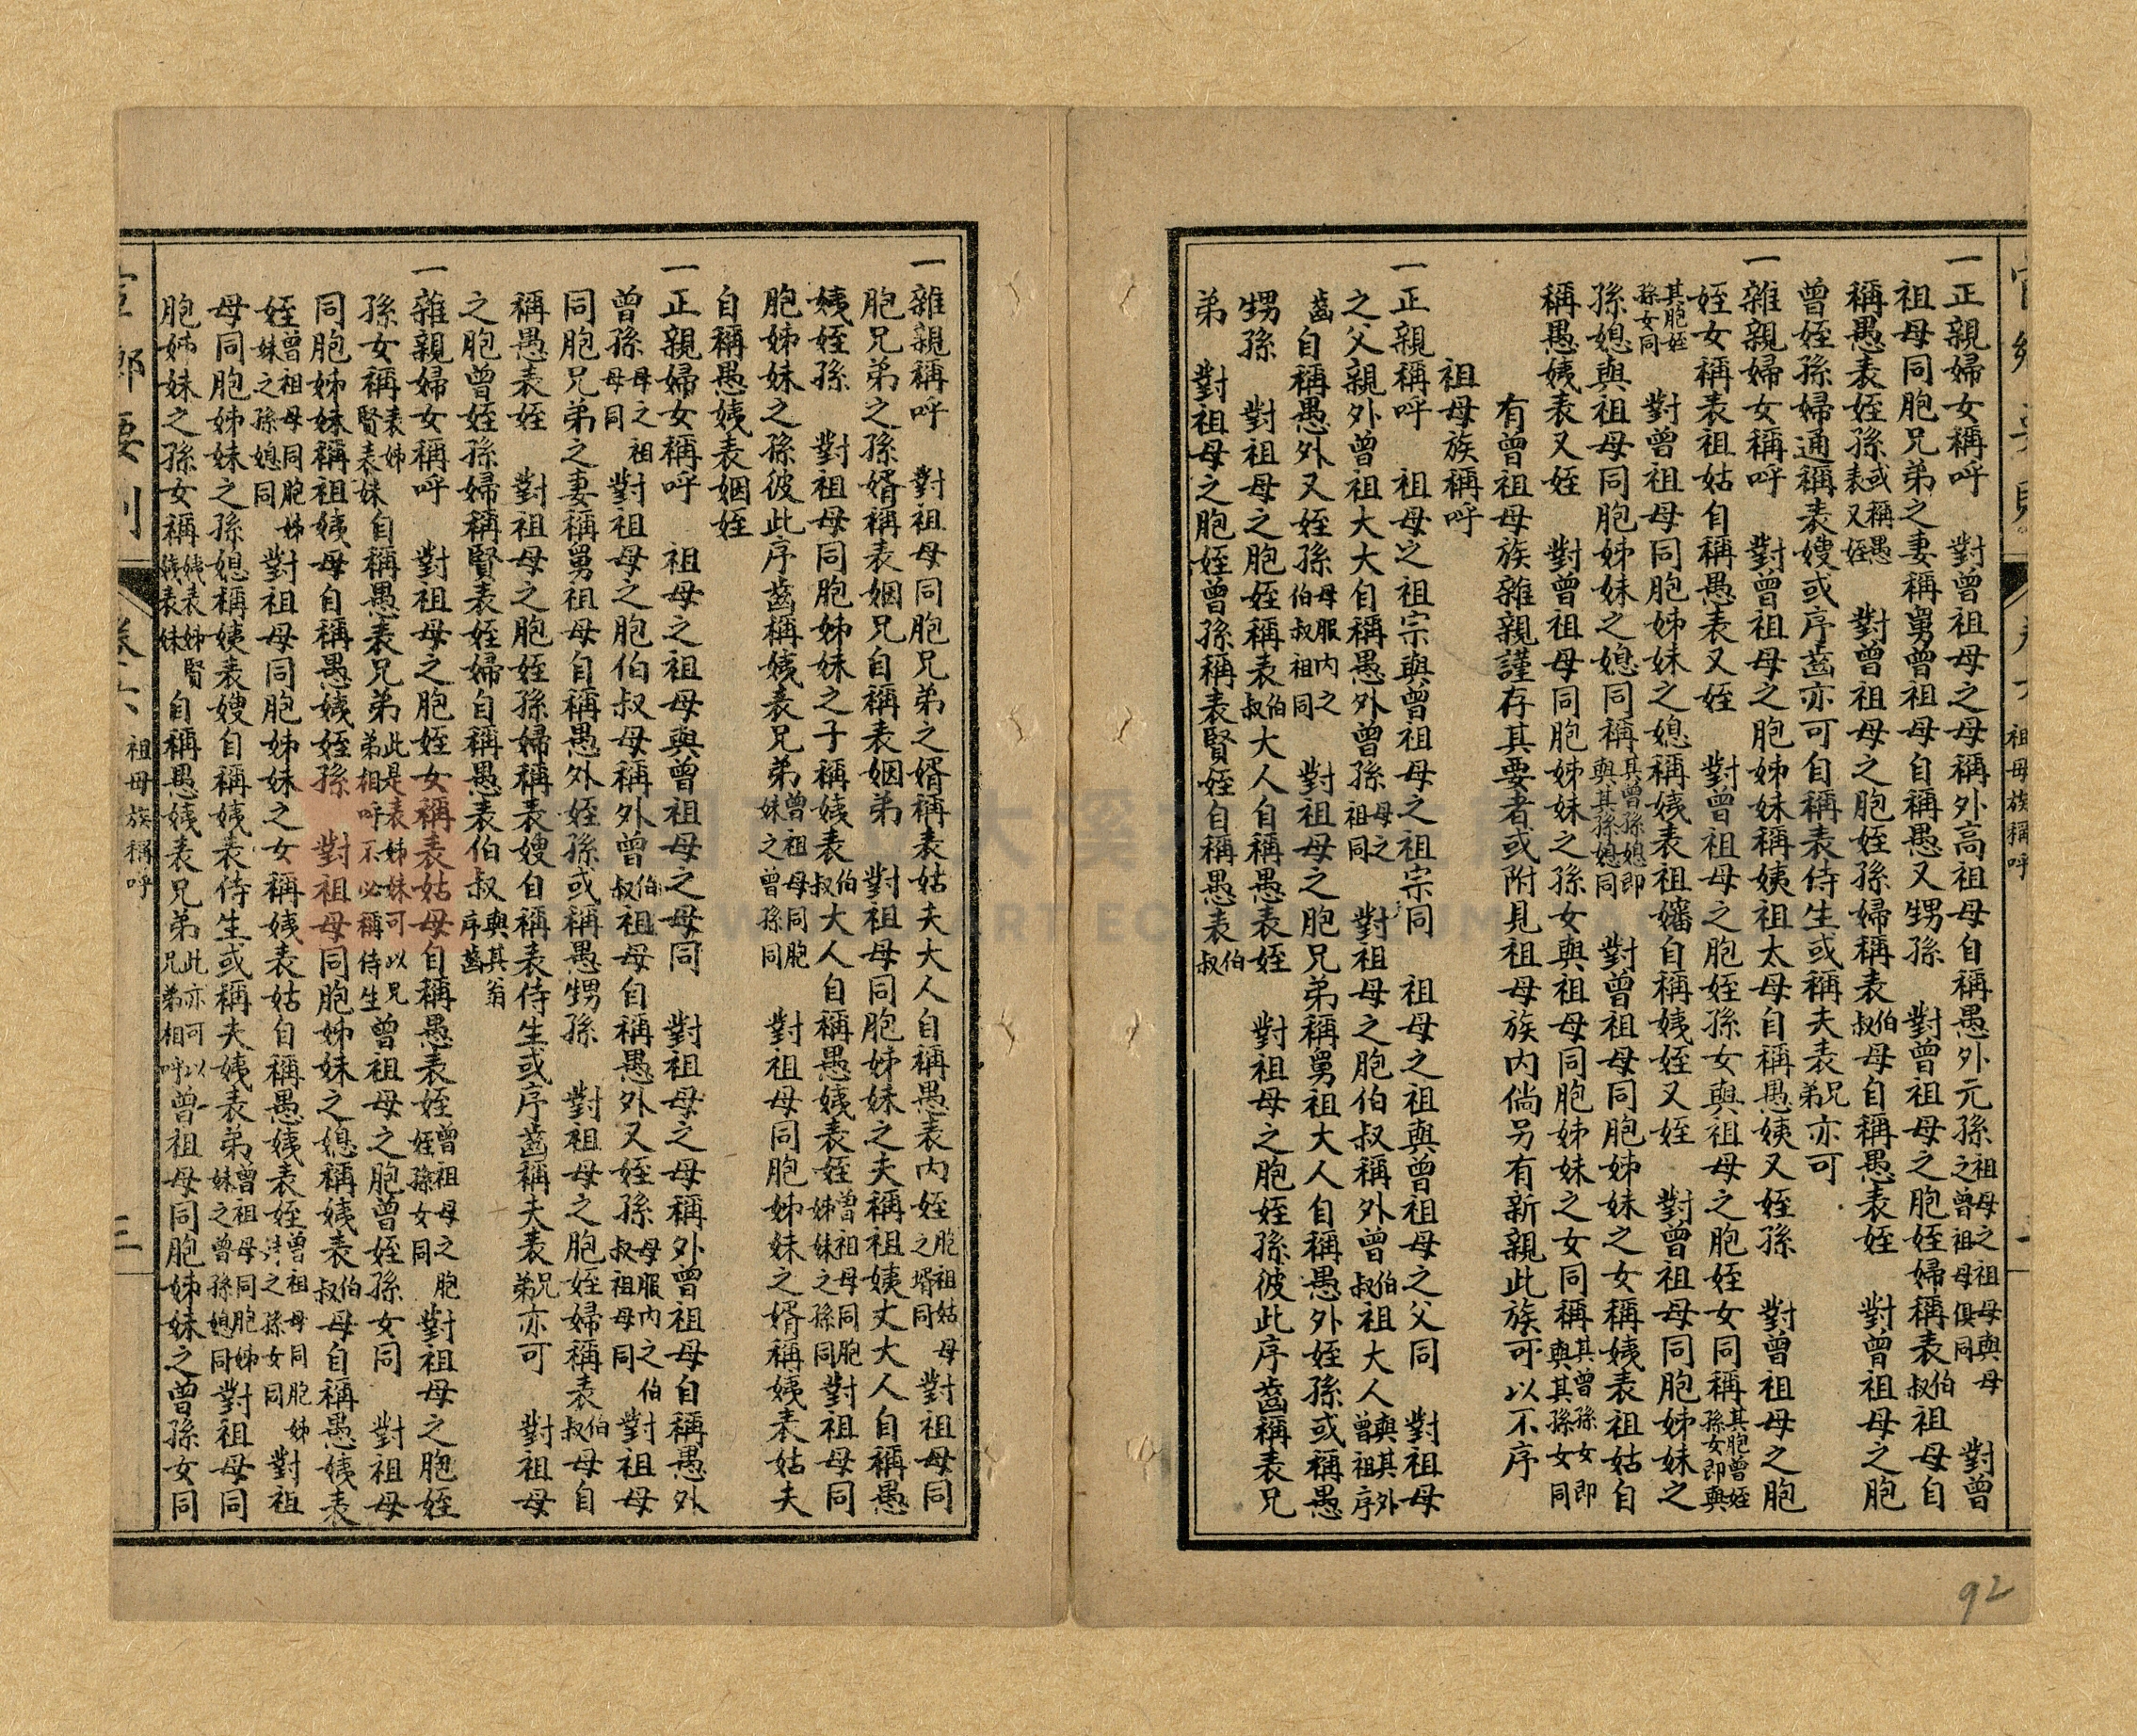 一正親婦女稱呼　對曾祖母之母稱外高祖母自稱愚外元孫祖母之祖母與母之曾祖母俱同　對曾
祖母同胞兄弟之妻稱舅曾祖母自稱愚又甥孫　對曾祖母之胞姪婦稱表伯叔祖母自
稱愚表姪孫或稱愚表又姪　對曾祖母之胞姪孫婦稱表伯叔母自稱愚表姪　對曾祖母之胞
曾姪孫婦通稱表嫂或序齒亦可自稱表侍生或稱夫表兄弟亦可
一雜親婦女稱呼　對曾祖母之胞姊妹稱姨祖太母自稱愚姨又姪孫　對曾祖母之胞
姪女稱表祖姑自稱愚表又姪　對曾祖母之胞姪孫女與祖母之胞姪女同稱其胞曾姪孫女即與
其胞姪孫女同　對曾祖母同胞姊妹之媳稱姨表祖嬸自稱姨姪又姪　對曾祖母同胞姊妹之
孫媳與祖母同胞姊妹之媳同稱其曾孫媳即與其孫媳同　對曾祖母同胞姊妹之女稱姨表祖姑自
稱愚姨表又姪　對曾祖母同胞姊妹之孫女與祖母同胞姊妹之女同稱其曾孫女即與其孫女同
有曾祖母族雜親謹存其要者或附見祖母族內倘另有新親此族可以不序
祖母族稱呼
一正親稱呼　祖母之祖宗與曾祖母之祖宗同　祖母之祖與曾祖母之父同　對祖母
之父親外曾祖大大自稱愚外曾孫母之祖同　對祖母之胞伯叔稱外曾伯叔祖大人與其外曾祖序
齒自稱愚外又姪孫母服內之伯叔祖同　對祖母之胞兄弟稱舅祖大人自稱愚外姪孫或稱愚
甥孫　對祖母之胞姪稱表伯叔大人自稱愚表姪　對祖母之胞姪孫彼此序齒稱表兄
弟　對祖母之胞姪曾孫稱表賢姪自稱愚表伯叔
祖母族稱呼
一雜親稱呼　對祖母同胞兄弟之婿稱表姑夫大人自稱愚表內姪胞祖姑母之壻同　對祖母同
胞兄弟之孫婿稱表姻兄自稱表姻弟　對祖母同胞姊妹之夫稱祖姨丈大人自稱愚
姨姪孫　對祖母同胞姊妹之子稱姨表伯叔大人自稱愚姨表姪曾祖母同胞姊妹之孫同　對祖母同
胞姊妹之孫彼此序齒稱姨表兄弟曾祖母同胞妹之曾孫同　對祖母同胞姊妹之婿稱姨表姑夫
自稱愚姨表姻姪
一正親婦女稱呼　祖母之祖母與曾祖母之母同　對祖母之母稱外曾祖母自稱愚外
曾孫母之祖母同　對祖母之胞伯叔母稱外曾伯叔祖母自稱愚外又姪孫母服內之伯叔祖母同　對祖母
同胞兄弟之妻稱舅祖母自稱愚外姪孫或稱愚甥孫　對祖母之胞姪婦稱表伯叔母自
稱愚表姪　對祖母之胞姪孫婦稱表嫂自稱表侍生或序齒稱夫表兄弟亦可　對祖母
之胞曾姪孫婦稱賢表姪婦自稱愚表伯叔與其翁序齒
一雜親婦女稱呼　對祖母之胞姪女稱表姑母自稱愚表姪曾祖母之胞姪孫女同　對祖母之胞姪
孫女稱表姊賢表妹自稱愚表兄弟此是表姊妹可以兄弟相呼不必稱侍生　曾祖母之胞曾姪孫女同　對祖母
同胞姊妹稱祖姨母自稱愚姨姪孫　對祖母同胞姊妹之媳稱姨表伯叔母自稱愚姨表
姪曾祖母同胞姊妹之孫媳同　對祖母同胞姊妹之女稱姨表姑自稱愚姨表姪曾祖母同胞姊妹之孫女同　對祖
母同胞姊妹之孫媳稱姨表嫂自稱姨表侍生或稱夫姨表弟曾祖母同胞姊妹之曾孫媳同　對祖母同
胞姊妹之孫女稱姨表姊賢姨表妹自稱愚姨表兄弟此亦可以兄弟相呼　曾祖母同胞姊妹之曾孫女同
卷六　祖母族稱呼　三
92